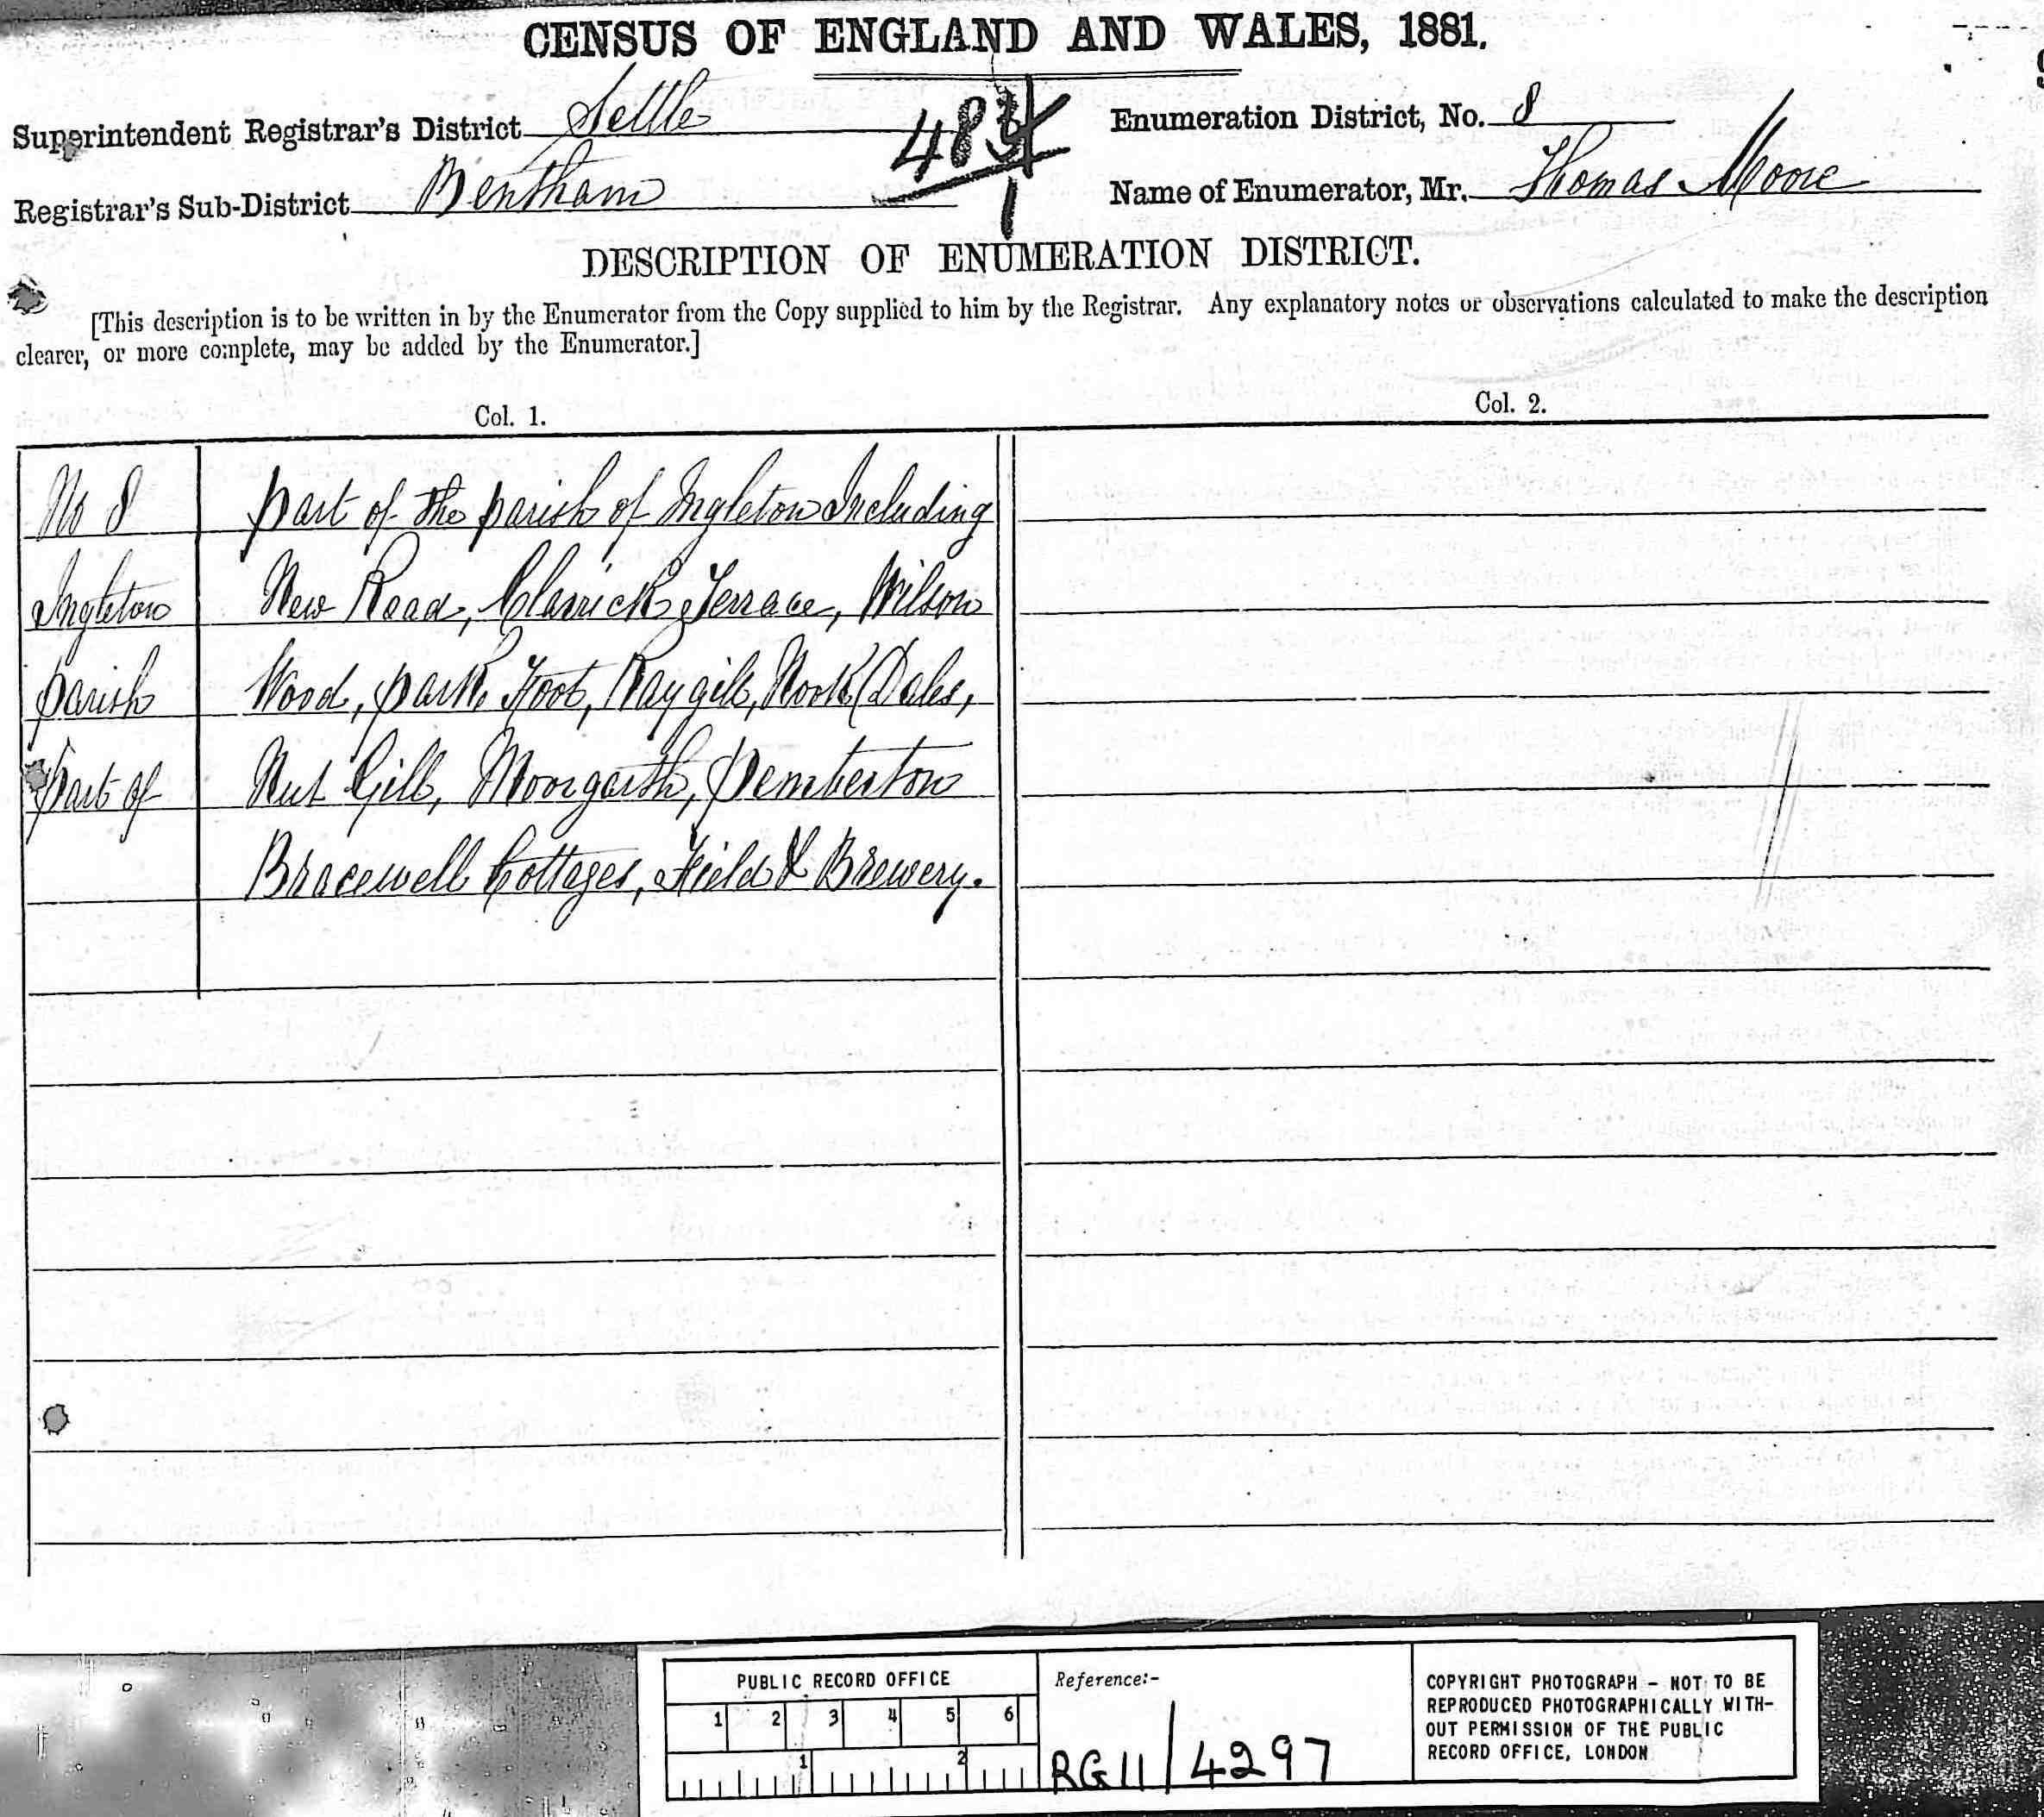 CENSUS OF ENGLAND AND WALES, 1881.
Superintendent Registrar's District Settle
Enumeration District, No. 8
Registrar's Sub-District Bentham
Name of Enumerator, Mr. Thomas Moore
DESCRIPTION OF ENUMERATION DISTRICT.
[This description is to be written in by the Enumerator from the Copy supplied to him by the Registrar. Any explanatory notes or observations calculated to make the description
clearer, or more complete, may be added by the Enumerator.]
Col. 1. Col. 2.
No 8 part of the parish of Ingleton Including
Ingleton New Road, Clarrick Terrace, Wilson
parish Wood, park Foot, Raygill, Nook (Dales,
part of Nut Gill, Moorgarth, Pemberton
Bracewell Cottages, Field & Brewery.
PUBLIC RECORD OFFICE
1 2 3 4 5 6
1 2
Reference:-
RG11/4297
COPYRIGHT PHOTOGRAPH - NOT TO BE
REPRODUCED PHOTOGRAPHICALLY WITH-
OUT PERMISSION OF THE PUBLIC
RECORD OFFICE, LONDON